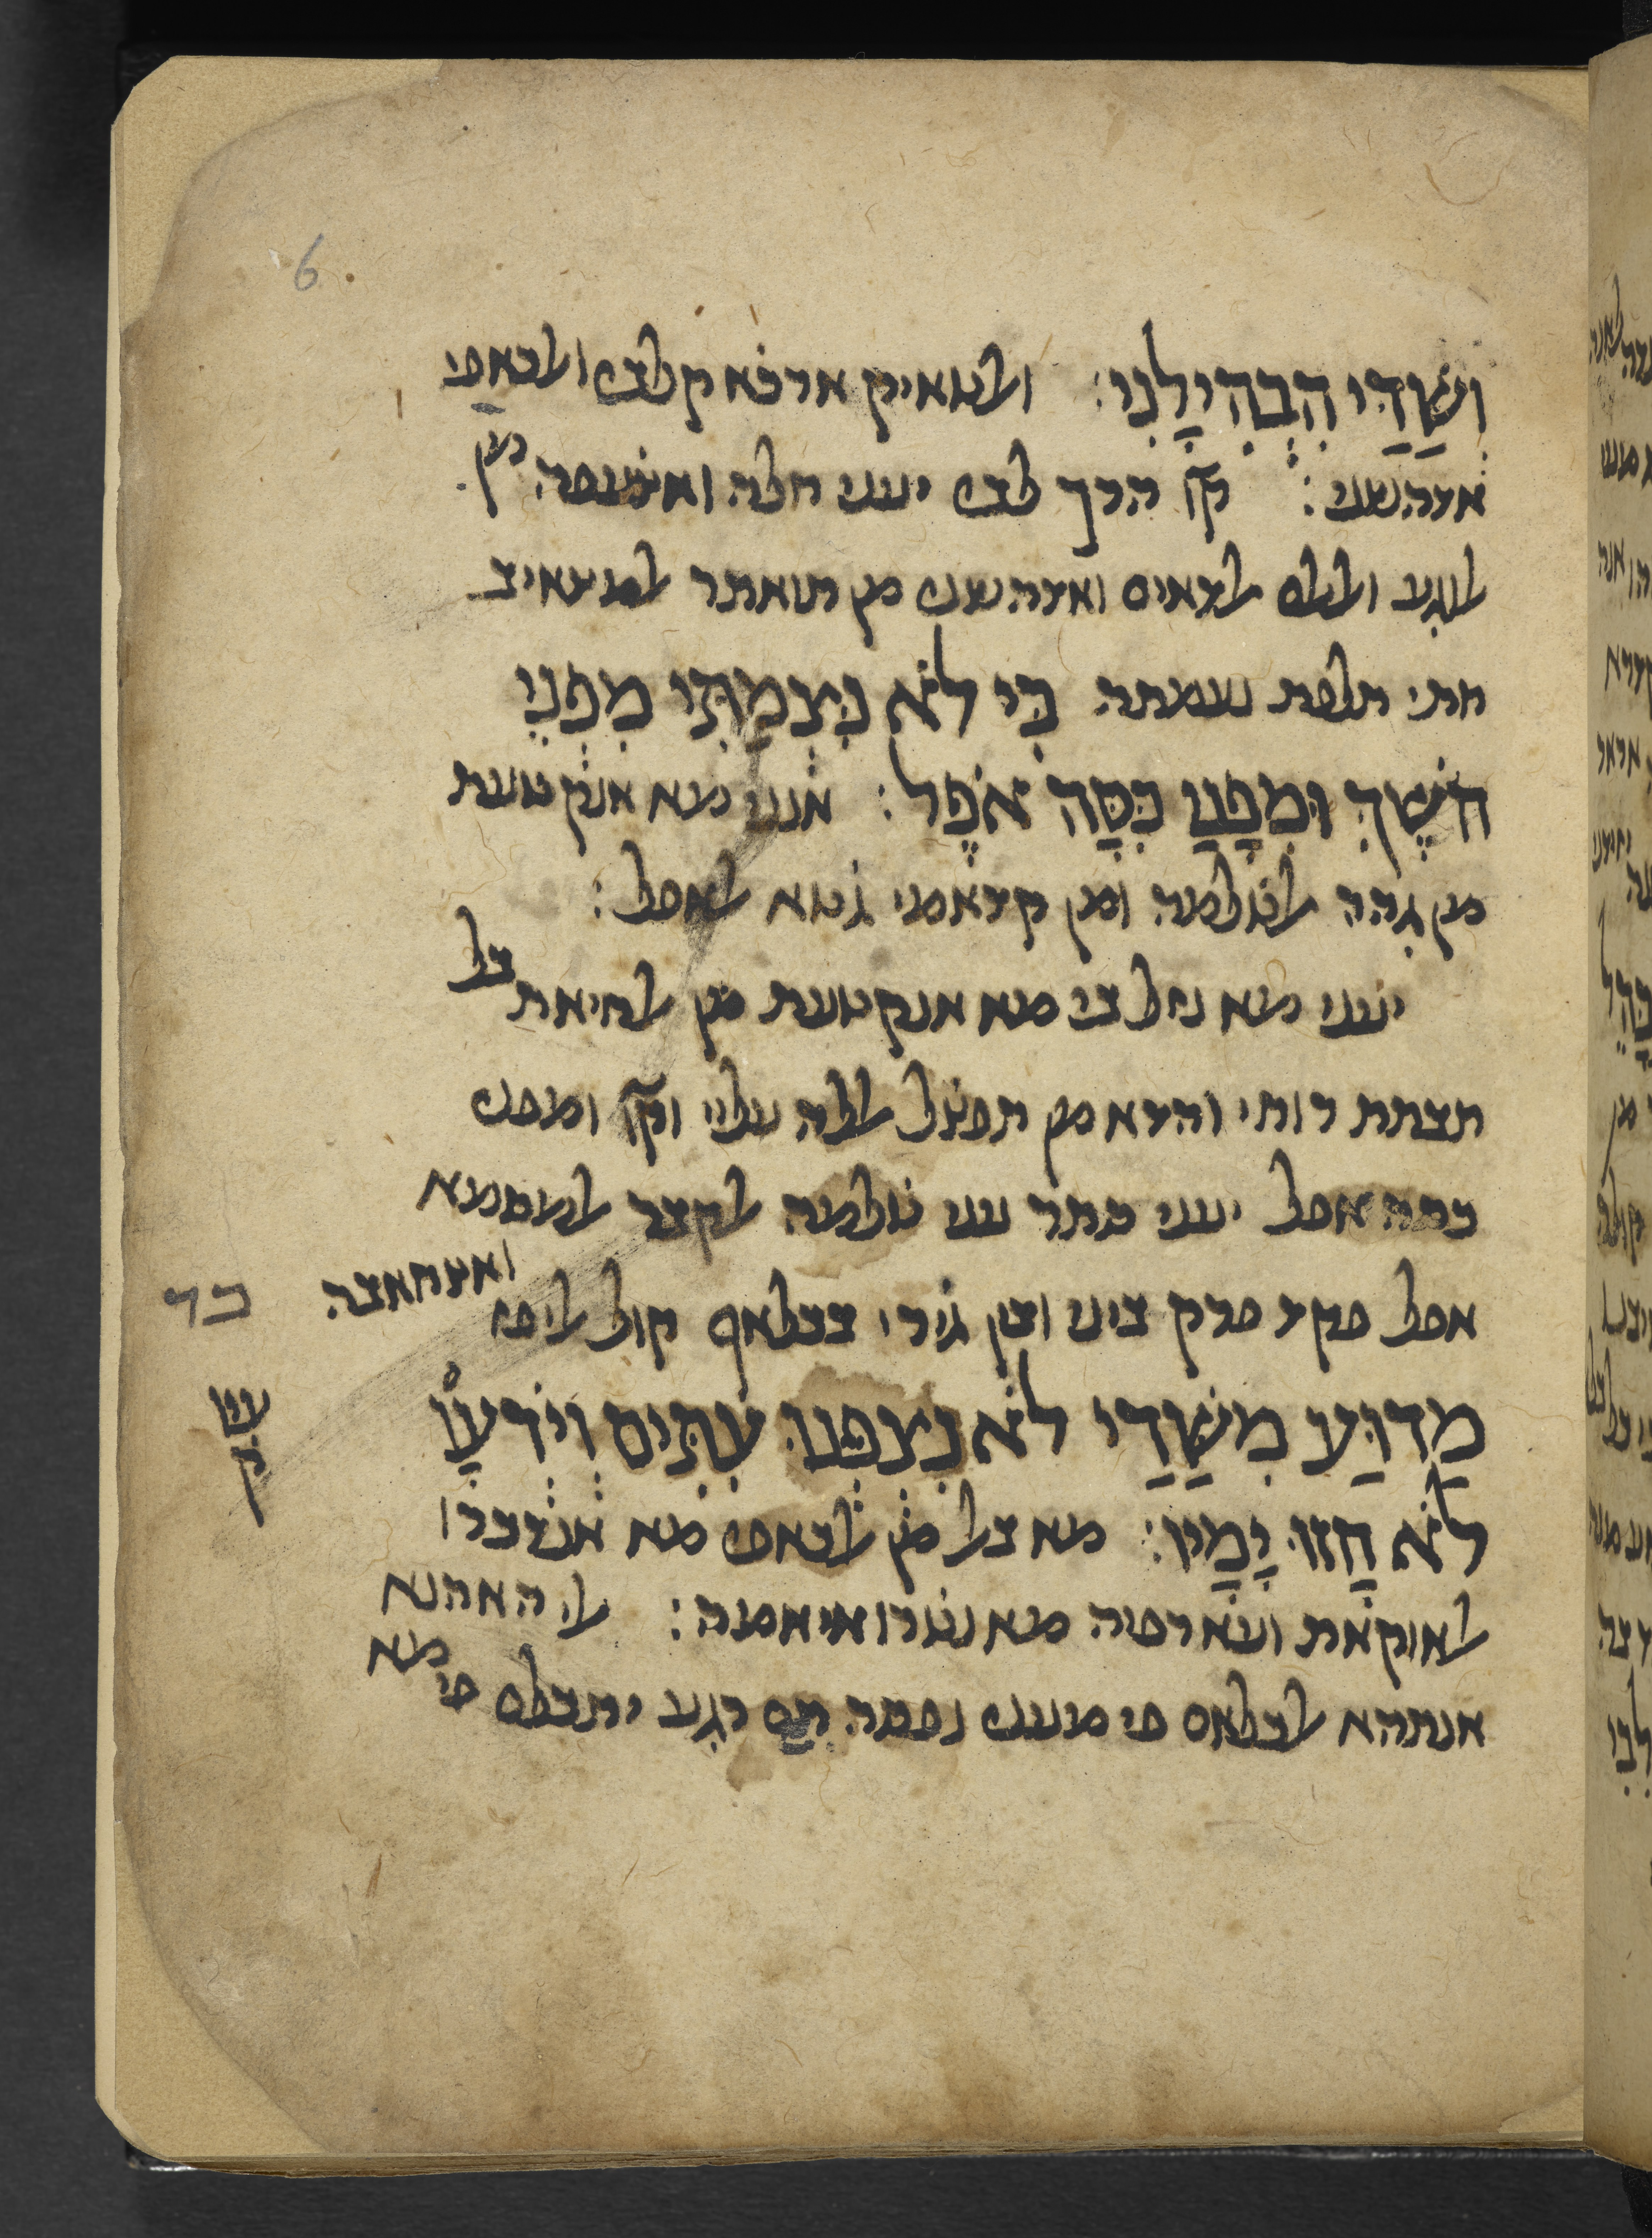 וְשַׁדַּי הִבְהִילָנִי: ואלטאיק ארכא קלבי ואלכאפי
אדהשני: קו הרך לבי יעני חלה ואצעפה מן
אלוגע ואלאלם אלדאים ואדהשני מן תואתר אלמצאיב
חתי תלפת נעמתה כִּי לֹא נִצְמַתִּי מִפְּנֵי
חֹשֶׁךְ וּמִפָּנַי כִּסָּה אֹפֶל: אנני מא אנקטעת
מן גהה אלטלמה ומן קדאמי גטא אלאפל:
יעני מא נזל בי מא אנקטעת מן אלחיאת בל
תבתת רוחי והדא מן תפצל אללה עלי וקו ומפני
כסה אפל יעני סתר עני טלמה אלקבר אלמסמא
אפל פקד פרק ביני ובין גירי בכלאף קול אליפז ואצחאבה
כד
מַדּוּעַ מִשַּׁדַּי לֹא נִצְפְּנוּ עִתִּים וְיֹדְעָו
לֹא חָזוּ יָמָיו: מא באל מן אלכאפי מא אנדכרו
אלאוקאת ועארפיה מא נטרו איאמה: אלי האהנא
אנתהא אלכלאם פי מעני נפסה תם רגע יתכלם פי מא
6